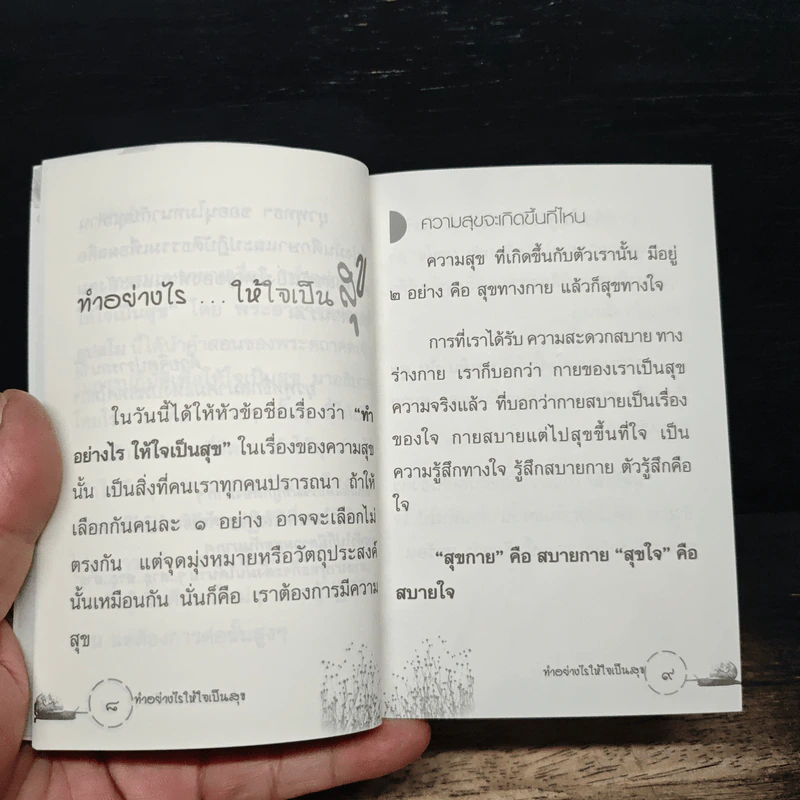 ทำอย่างไร ... ให้ใจเป็นสุข
ในวันนี้ได้ให้หัวข้อชื่อเรื่องว่า “ทำ
อย่างไร ให้ใจเป็นสุข” ในเรื่องของความสุข
นั้น เป็นสิ่งที่คนเราทุกคนปรารถนา ถ้าให้
เลือกกันคนละ ๑ อย่าง อาจจะเลือกไม่
ตรงกัน แต่จุดมุ่งหมายหรือวัตถุประสงค์
นั้นเหมือนกัน นั่นก็คือ เราต้องการมีความ
สุข
๘ ทำอย่างไรให้ใจเป็นสุข
ความสุขจะเกิดขึ้นที่ไหน
ความสุข ที่เกิดขึ้นกับตัวเรานั้น มีอยู่
๒ อย่าง คือ สุขทางกาย แล้วก็สุขทางใจ
การที่เราได้รับ ความสะดวกสบาย ทาง
ร่างกาย เราก็บอกว่า กายของเราเป็นสุข
ความจริงแล้ว ที่บอกว่ากายสบายเป็นเรื่อง
ของใจ กายสบายแต่ไปสุขขึ้นที่ใจ เป็น
ความรู้สึกทางใจ รู้สึกสบายกาย ตัวรู้สึกคือ
ใจ
“สุขกาย” คือ สบายกาย “สุขใจ” คือ
สบายใจ
ทำอย่างไรให้ใจเป็นสุข ๙